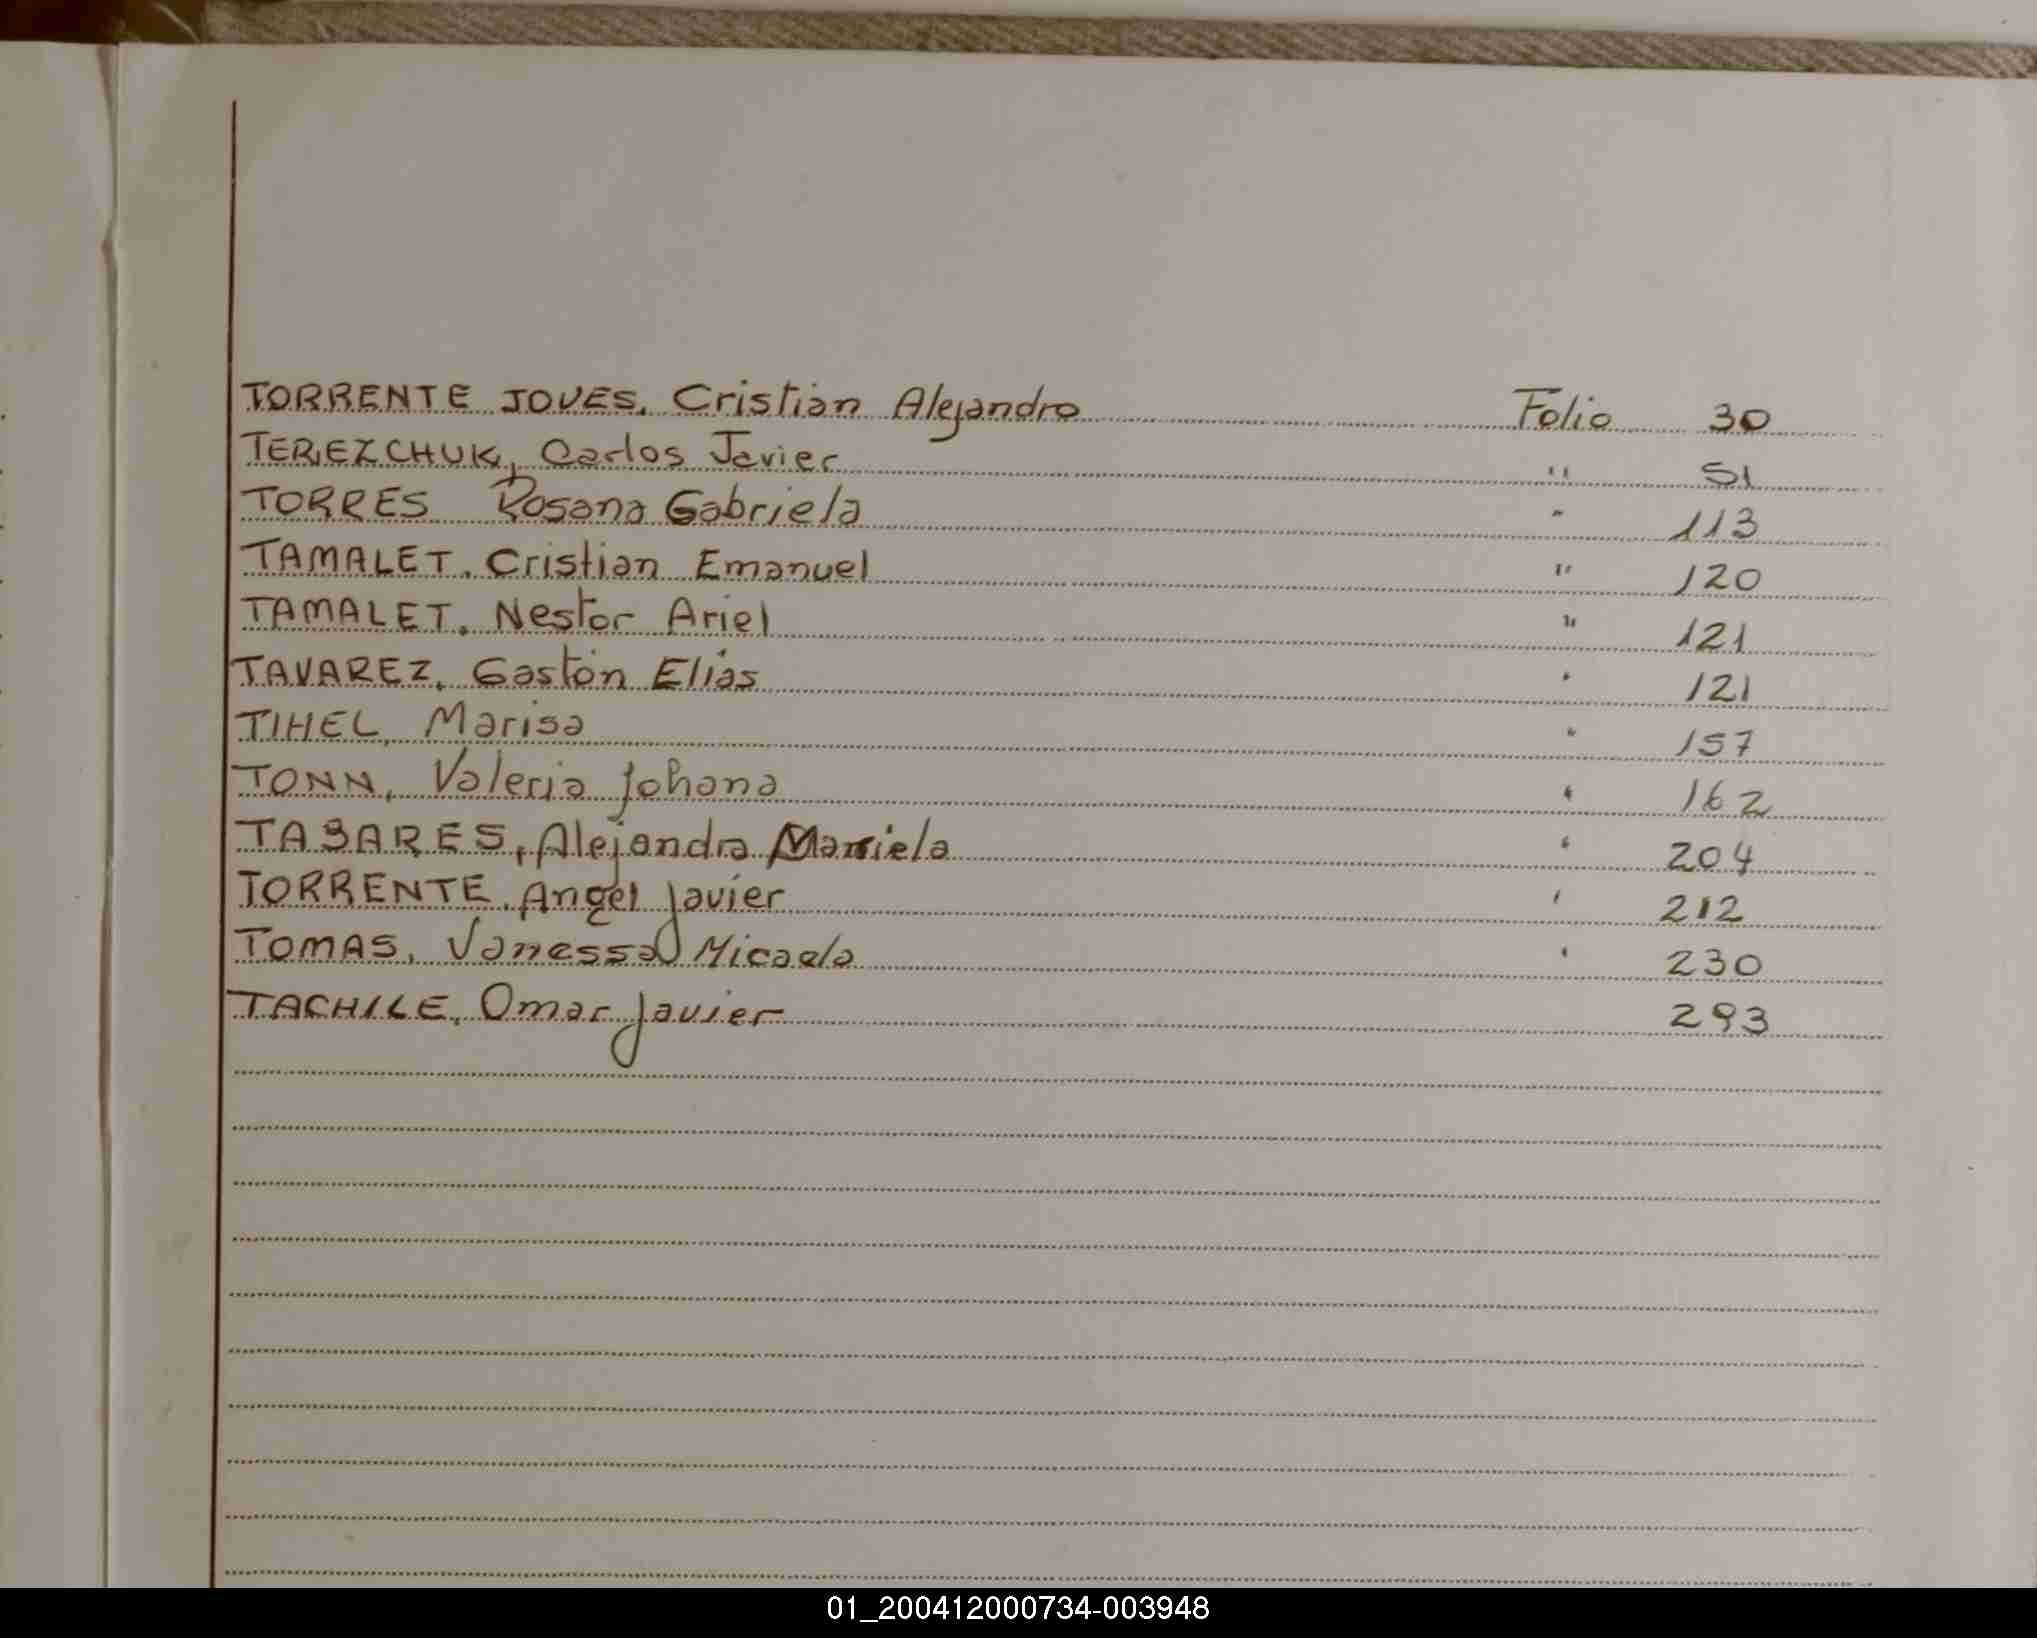 TORRENTE JOVES, Cristian Alejandro Folio 30
TEREZCHUK, Carlos Javier " 51
TORRES Rosana Gabriela " 113
TAMALET, Cristian Emanuel " 120
TAMALET, Nestor Ariel " 121
TAVAREZ, Gastón Elías " 121
TIHEL, Marisa " 157
TONN, Valeria Johana " 162
TABARES, Alejandra Mariela " 204
TORRENTE, Angel Javier " 212
TOMAS, Vanessa Micaela " 230
TACHILE, Omar Javier 293
01_200412000734-003948